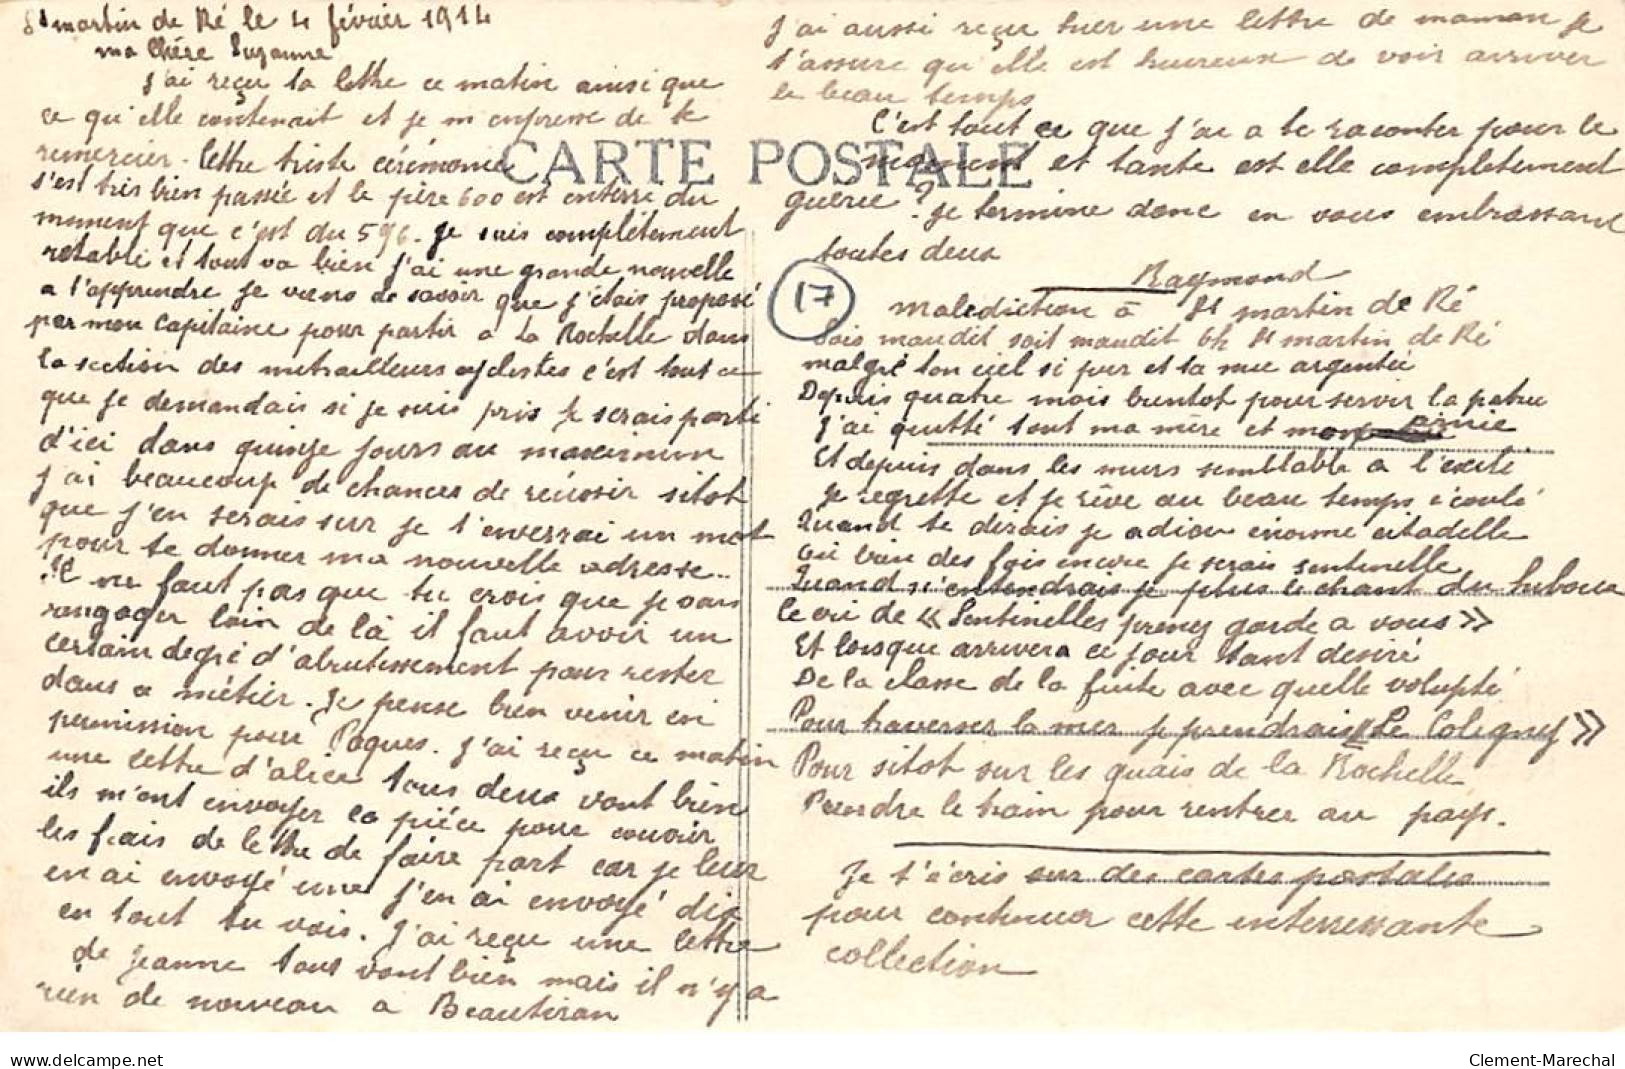 St martin de Ré le 4 février 1914
ma Chère Suzanne
J'ai reçu ta lettre ce matin ainsi que
ce qu'elle contenait et je m'empresse de te
remercier. lettre triste cérémonie
s'est très bien passée et le père 600 est enterré du
moment que c'est du 596. Je suis complétement
retablie et tout va bien J'ai une grande nouvelle
a t'apprendre je viens de savoir que j'étais proposé
par mon Capitaine pour partir a La Rochelle dans
la section des mitrailleurs cyclistes c'est tout ce
que je demandais si je suis pris je serais parti
d'ici dans quinze jours au maximum
J'ai beaucoup de chances de réussir sitot
que j'en serais sur je t'enverrai un mot
pour te donner ma nouvelle adresse...
Il ne faut pas que tu crois que je vais
rangager loin de là il faut avoir un
certain degré d'abrutissement pour rester
dans ce métier. Je pense bien venir en
permission pour Pâques. J'ai reçu ce matin
une lettre d'alice tous deux vont bien
ils m'ont envoyer la pièce pour couvrir
les frais de lettre de faire part car je leur
en ai envoyé une j'en ai envoyé dix
en tout tu vois. J'ai reçu une lettre
de Jeanne tous vont bien mais il n'y a
rien de nouveau a Beautiran
J'ai aussi reçu hier une lettre de maman je
t'assure qu'elle est heureuse de voir arriver
le beau temps
C'est tout ce que j'ai a te raconter pour le
moment et tante est elle completement
guérie? Je termine donc en vous embrassant
toutes deux
Raymond
CARTE POSTALE
17
Malediction à St martin de Ré
Sois maudit soit maudit oh St martin de Ré
malgré ton ciel si pur et ta nue argentée
Depuis quatre mois bientot pour servir la patrie
J'ai quitté tout ma mère et mon amie
Et depuis dans les murs semblable a l'exilé
Je regrette et je rêve au beau temps écoulé
Quand te dirais je adieu énorme citadelle
Ou bien des fois encore je serais sentinelle
Quand n'entendrais je plus le chant du hiboux
le cri de « Sentinelles prenez garde a vous »
Et lorsque arrivera ce jour tant desiré
De la classe de la fuite avec quelle volupté
Pour traverser la mer je prendrais « Le Coligny »
Pour sitot sur les quais de la Rochelle
Prendre le train pour rentrer au pays.
Je t'écris sur des cartes postales
pour continuer cette interressante
collection
delcampe.net
Clement-Marechal